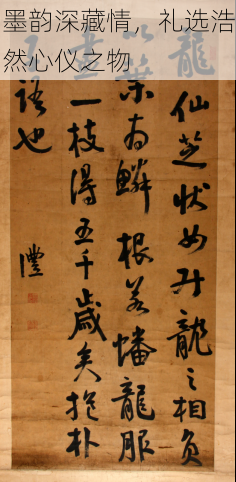 墨韵深藏情，礼选浩
然心仪之物
龍仙芝状如升龍之相負
以葉為鱗根若蟠龍服
一枝得五千歲矣抱朴
子語也
灃